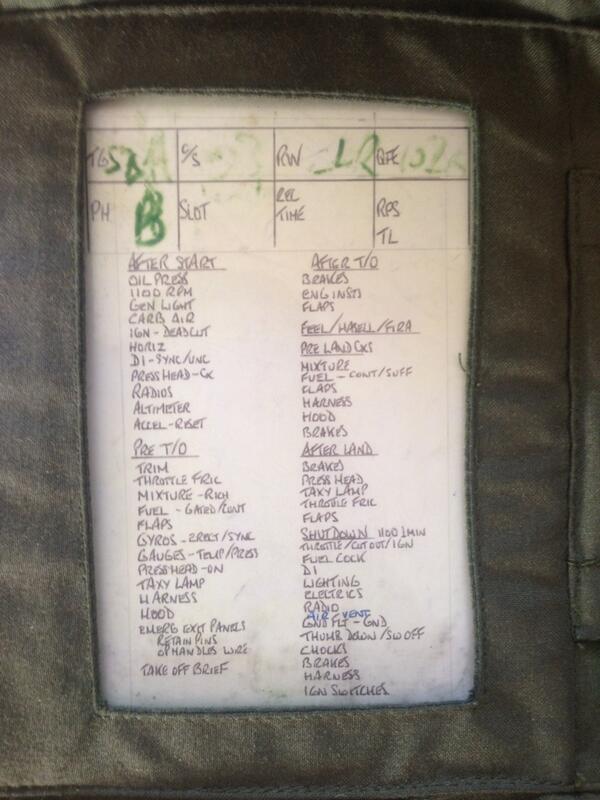 C/S
RW
QFE
PH
B
SLOT
REL
TIME
RPS
TL
AFTER START
OIL PRESS
1100 RPM
GEN LIGHT
CARB AIR
IGN - DEADCUT
HORIZ
DI - SYNC/UNC
PRESS HEAD - CK
RADIOS
ALTIMETER
ACCEL - RESET
PRE T/O
TRIM
THROTTLE FRIC
MIXTURE - RICH
FUEL - GATED/CONT
FLAPS
GYROS - ERECT/SYNC
GAUGES - TEMP/PRESS
PRESS HEAD - ON
TAXY LAMP
HARNESS
HOOD
EMERG EXIT PANELS
RETAIN PINS
OP HANDLES WIRE
TAKE OFF BRIEF
AFTER T/O
BRAKES
ENG INSTS
FLAPS
FEEL/HASELL/FIRA
PRE LAND CKS
MIXTURE
FUEL - CONT/SUFF
FLAPS
HARNESS
HOOD
BRAKES
AFTER LAND
BRAKES
PRESS HEAD
TAXY LAMP
THROTTLE FRIC
FLAPS
SHUTDOWN 1100 1 MIN
THROTTLE/CUT OUT/IGN
FUEL COCK
DI
LIGHTING
ELECTRICS
RADIO
AIR VENT
GND FLT - GND
THUMB DOWN/SW OFF
CHOCKS
BRAKES
HARNESS
IGN SWITCHES